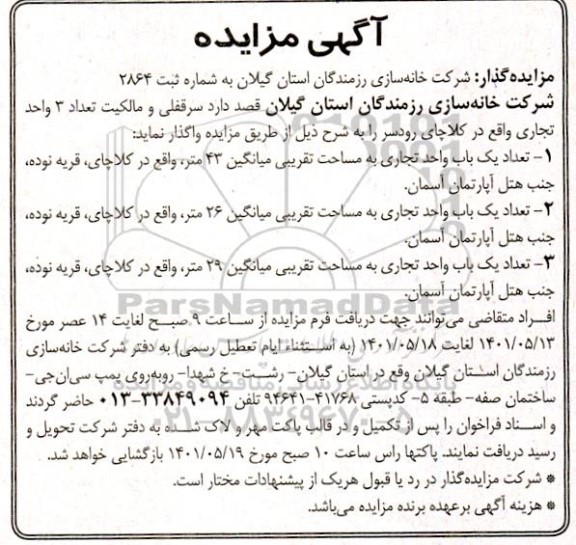 آگهی مزایده
مزایده‌گذار: شرکت خانه‌سازی رزمندگان استان گیلان به شماره ثبت ۲۸۶۴
شرکت خانه‌سازی رزمندگان استان گیلان قصد دارد سرقفلی و مالکیت تعداد ۳ واحد
تجاری واقع در کلاچای رودسر را به شرح ذیل از طریق مزایده واگذار نماید:
۱- تعداد یک باب واحد تجاری به مساحت تقریبی میانگین ۴۳ متر، واقع در کلاچای، قریه نوده،
جنب هتل آپارتمان آسمان.
۲- تعداد یک باب واحد تجاری به مساحت تقریبی میانگین ۲۶ متر، واقع در کلاچای، قریه نوده،
جنب هتل آپارتمان آسمان.
۳- تعداد یک باب واحد تجاری به مساحت تقریبی میانگین ۲۹ متر، واقع در کلاچای، قریه نوده،
جنب هتل آپارتمان آسمان.
ParsNamadData
افراد متقاضی می‌توانند جهت دریافت فرم مزایده از ساعت ۹ صبح لغایت ۱۴ عصر مورخ
۱۴۰۱/۰۵/۱۳ لغایت ۱۴۰۱/۰۵/۱۸ (به استثناء ایام تعطیل رسمی) به دفتر شرکت خانه‌سازی
رزمندگان استان گیلان وقع در استان گیلان- رشت- خ شهدا- روبه‌روی پمپ سی‌ان‌جی-
پایگاه اطلاع رسانی مناقصه و مزایده
ساختمان صفه- طبقه ۵- کدپستی ۴۱۷۶۸-۹۴۶۴۱ تلفن ۳۳۸۴۹۰۹۴-۰۱۳ حاضر گردند
۰۲۱-۸۸۳۴۹۶۷۰-۵
و اسناد فراخوان را پس از تکمیل و در قالب پاکت مهر و لاک شده به دفتر شرکت تحویل و
رسید دریافت نمایند. پاکتها راس ساعت ۱۰ صبح مورخ ۱۴۰۱/۰۵/۱۹ بازگشایی خواهد شد.
* شرکت مزایده‌گذار در رد یا قبول هریک از پیشنهادات مختار است.
* هزینه آگهی برعهده برنده مزایده می‌باشد.